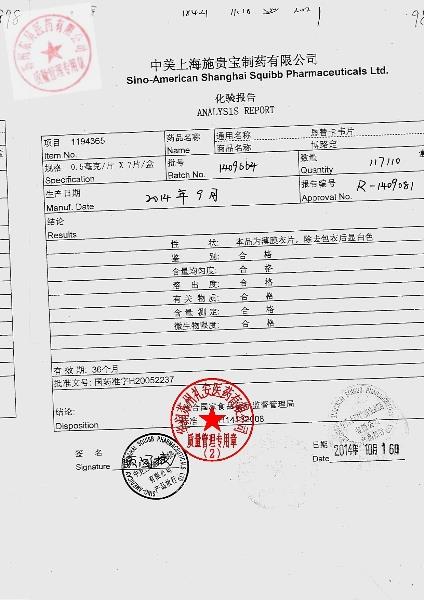 中美上海施贵宝制药有限公司
Sino-American Shanghai Squibb Pharmaceuticals Ltd.
化验报告
ANALYSIS REPORT
项目 1194365 药品名称 通用名称 恩替卡韦片
Item No. Name 商品名称 博路定
规格 0.5毫克/片 X 7片/盒 批号 1409664 数量 117110
Specification Batch No. Quantity
生产日期 2014年9月 报告编号 R-1409081
Manuf. Date Approval No.
结论
Results
性 状: 本品为薄膜衣片，除去包衣后显白色
鉴 别: 合 格
含量均匀度: 合 格
溶 出 度: 合 格
有 关 物 质: 合 格
含 量 测 定: 合 格
微生物限度: 合 格
有 效 期: 36个月
批准文号: 国药准字H20052237
结论: 合国家食品 监督管理局
Disposition
质量管理专用章
(2)
签 名
Signature
日期
Date 2014年 10月 16日